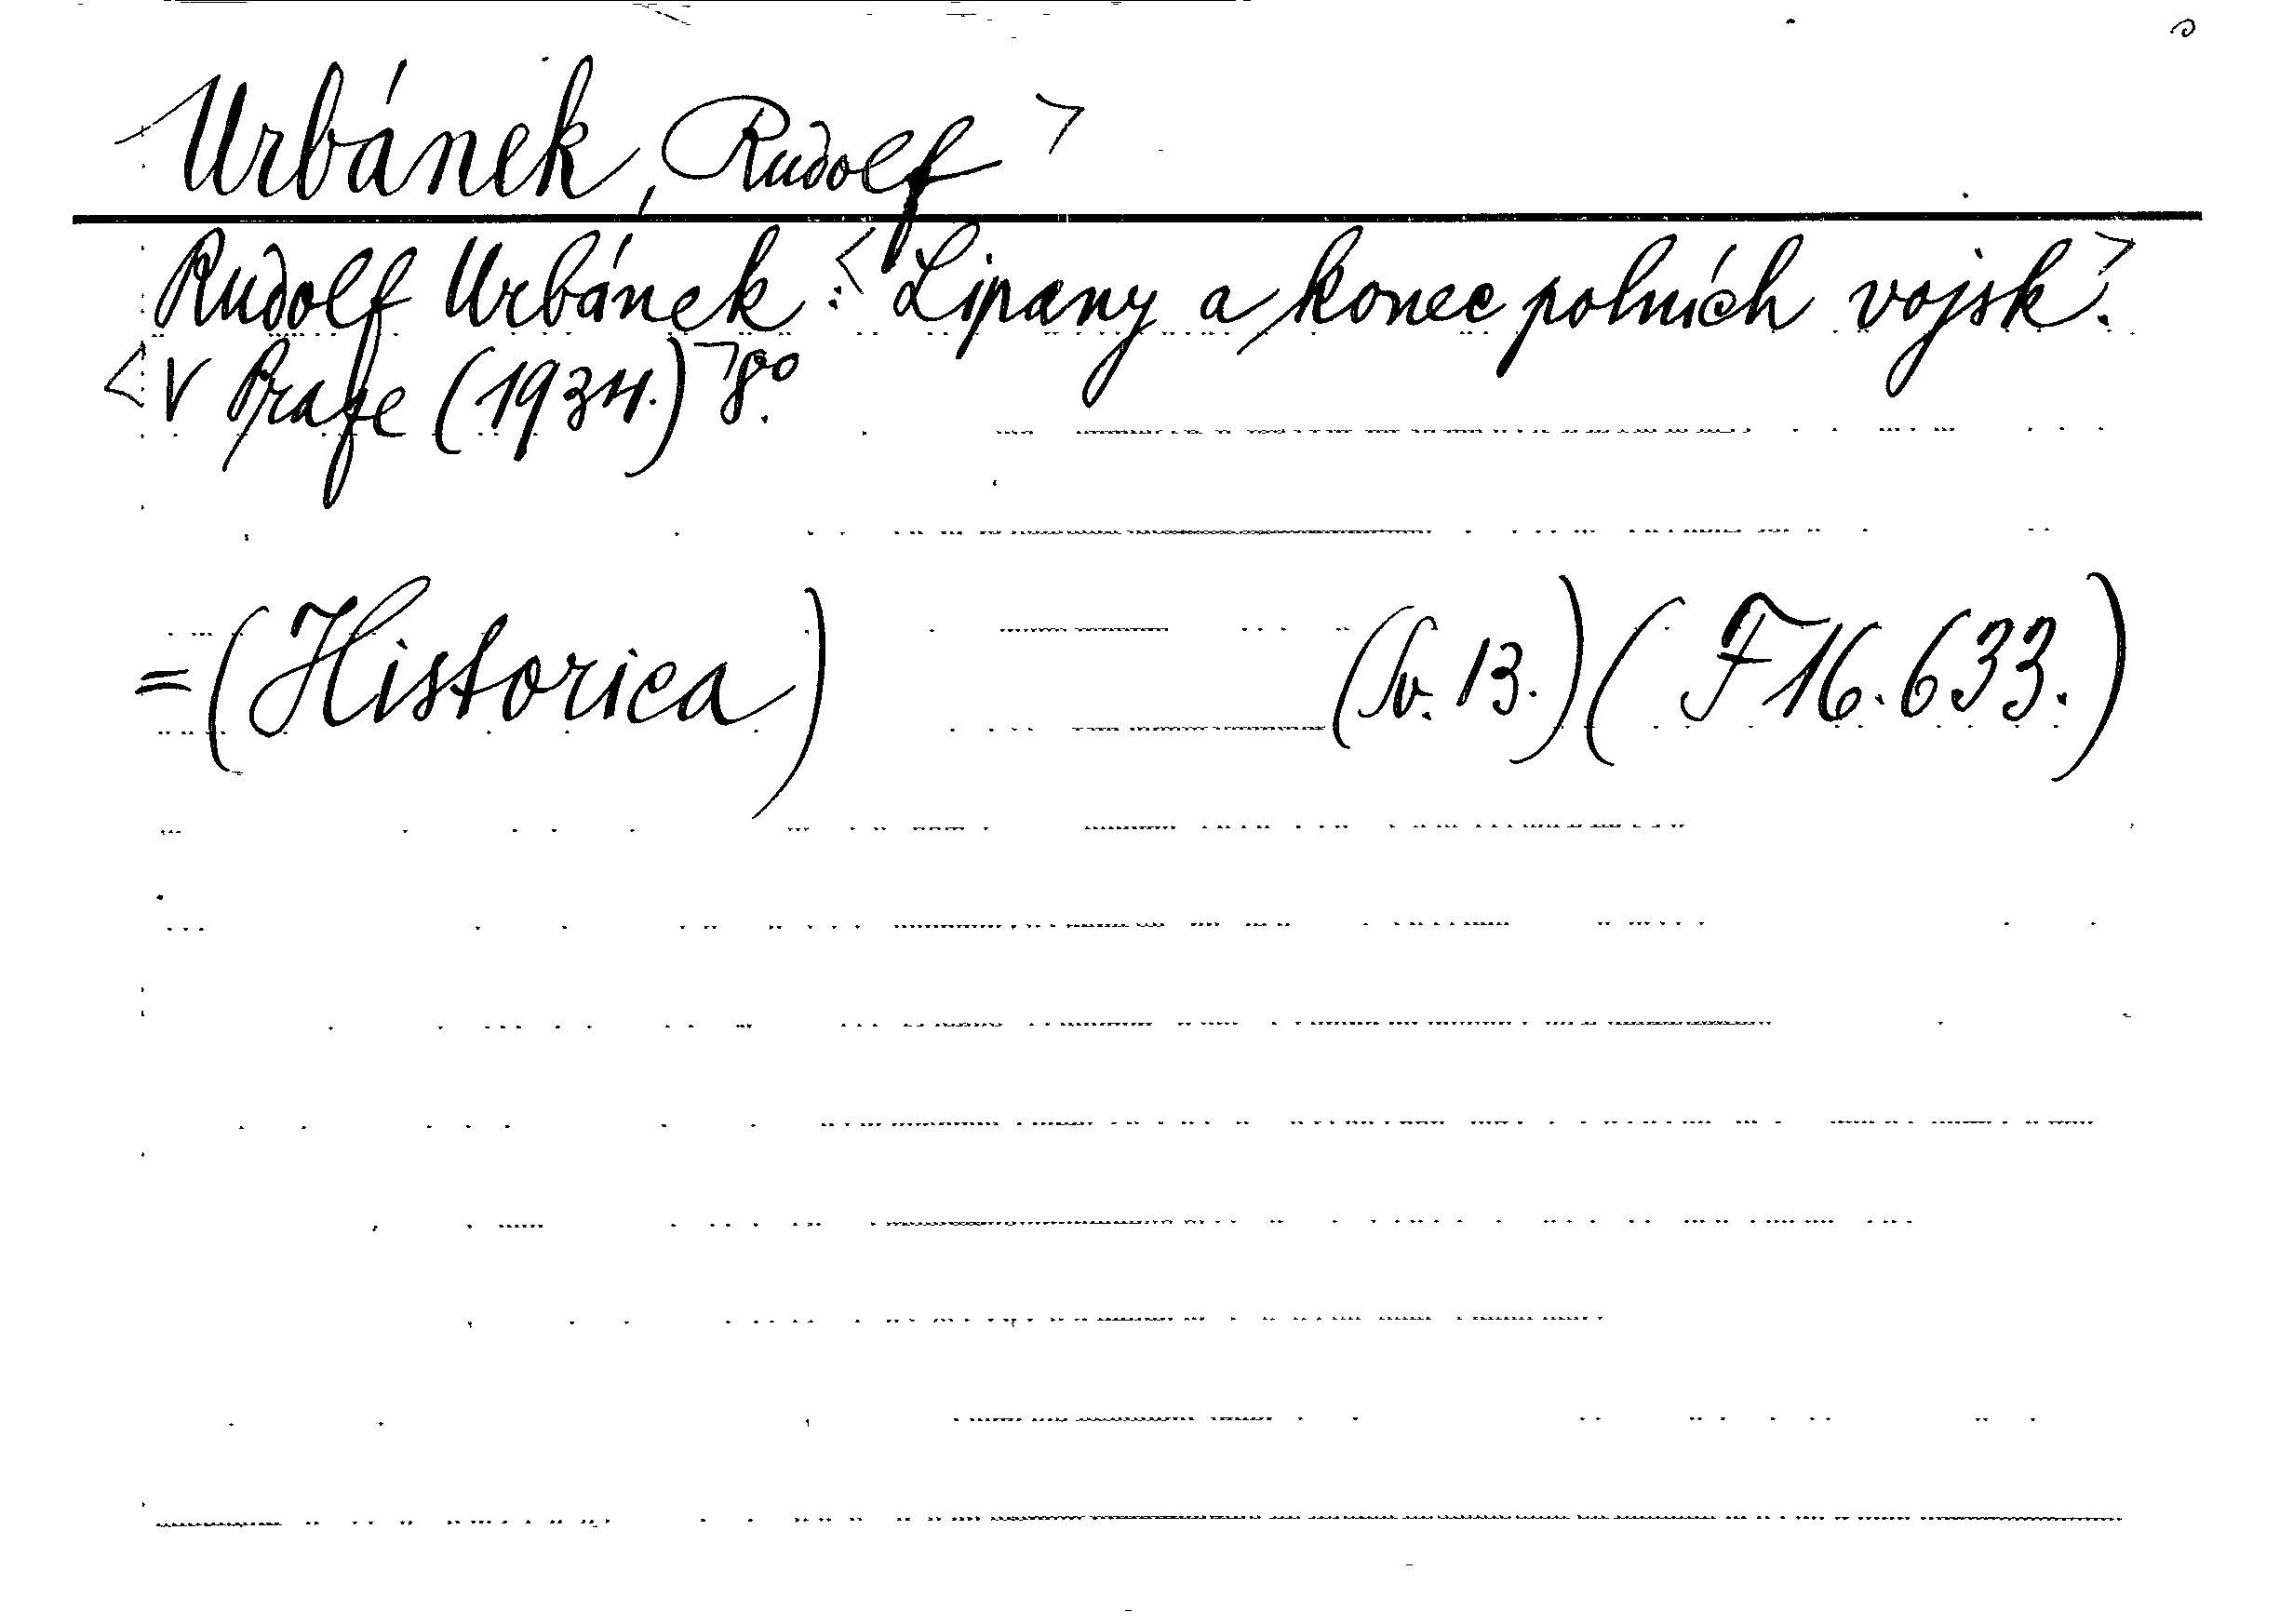 Urbánek, Rudolf >
Rudolf Urbánek: <Lipany a konec polních vojsk.>
<V Praze (1934.)> 8°.
=(Historica) (Sv. 13.)(F16.633.)